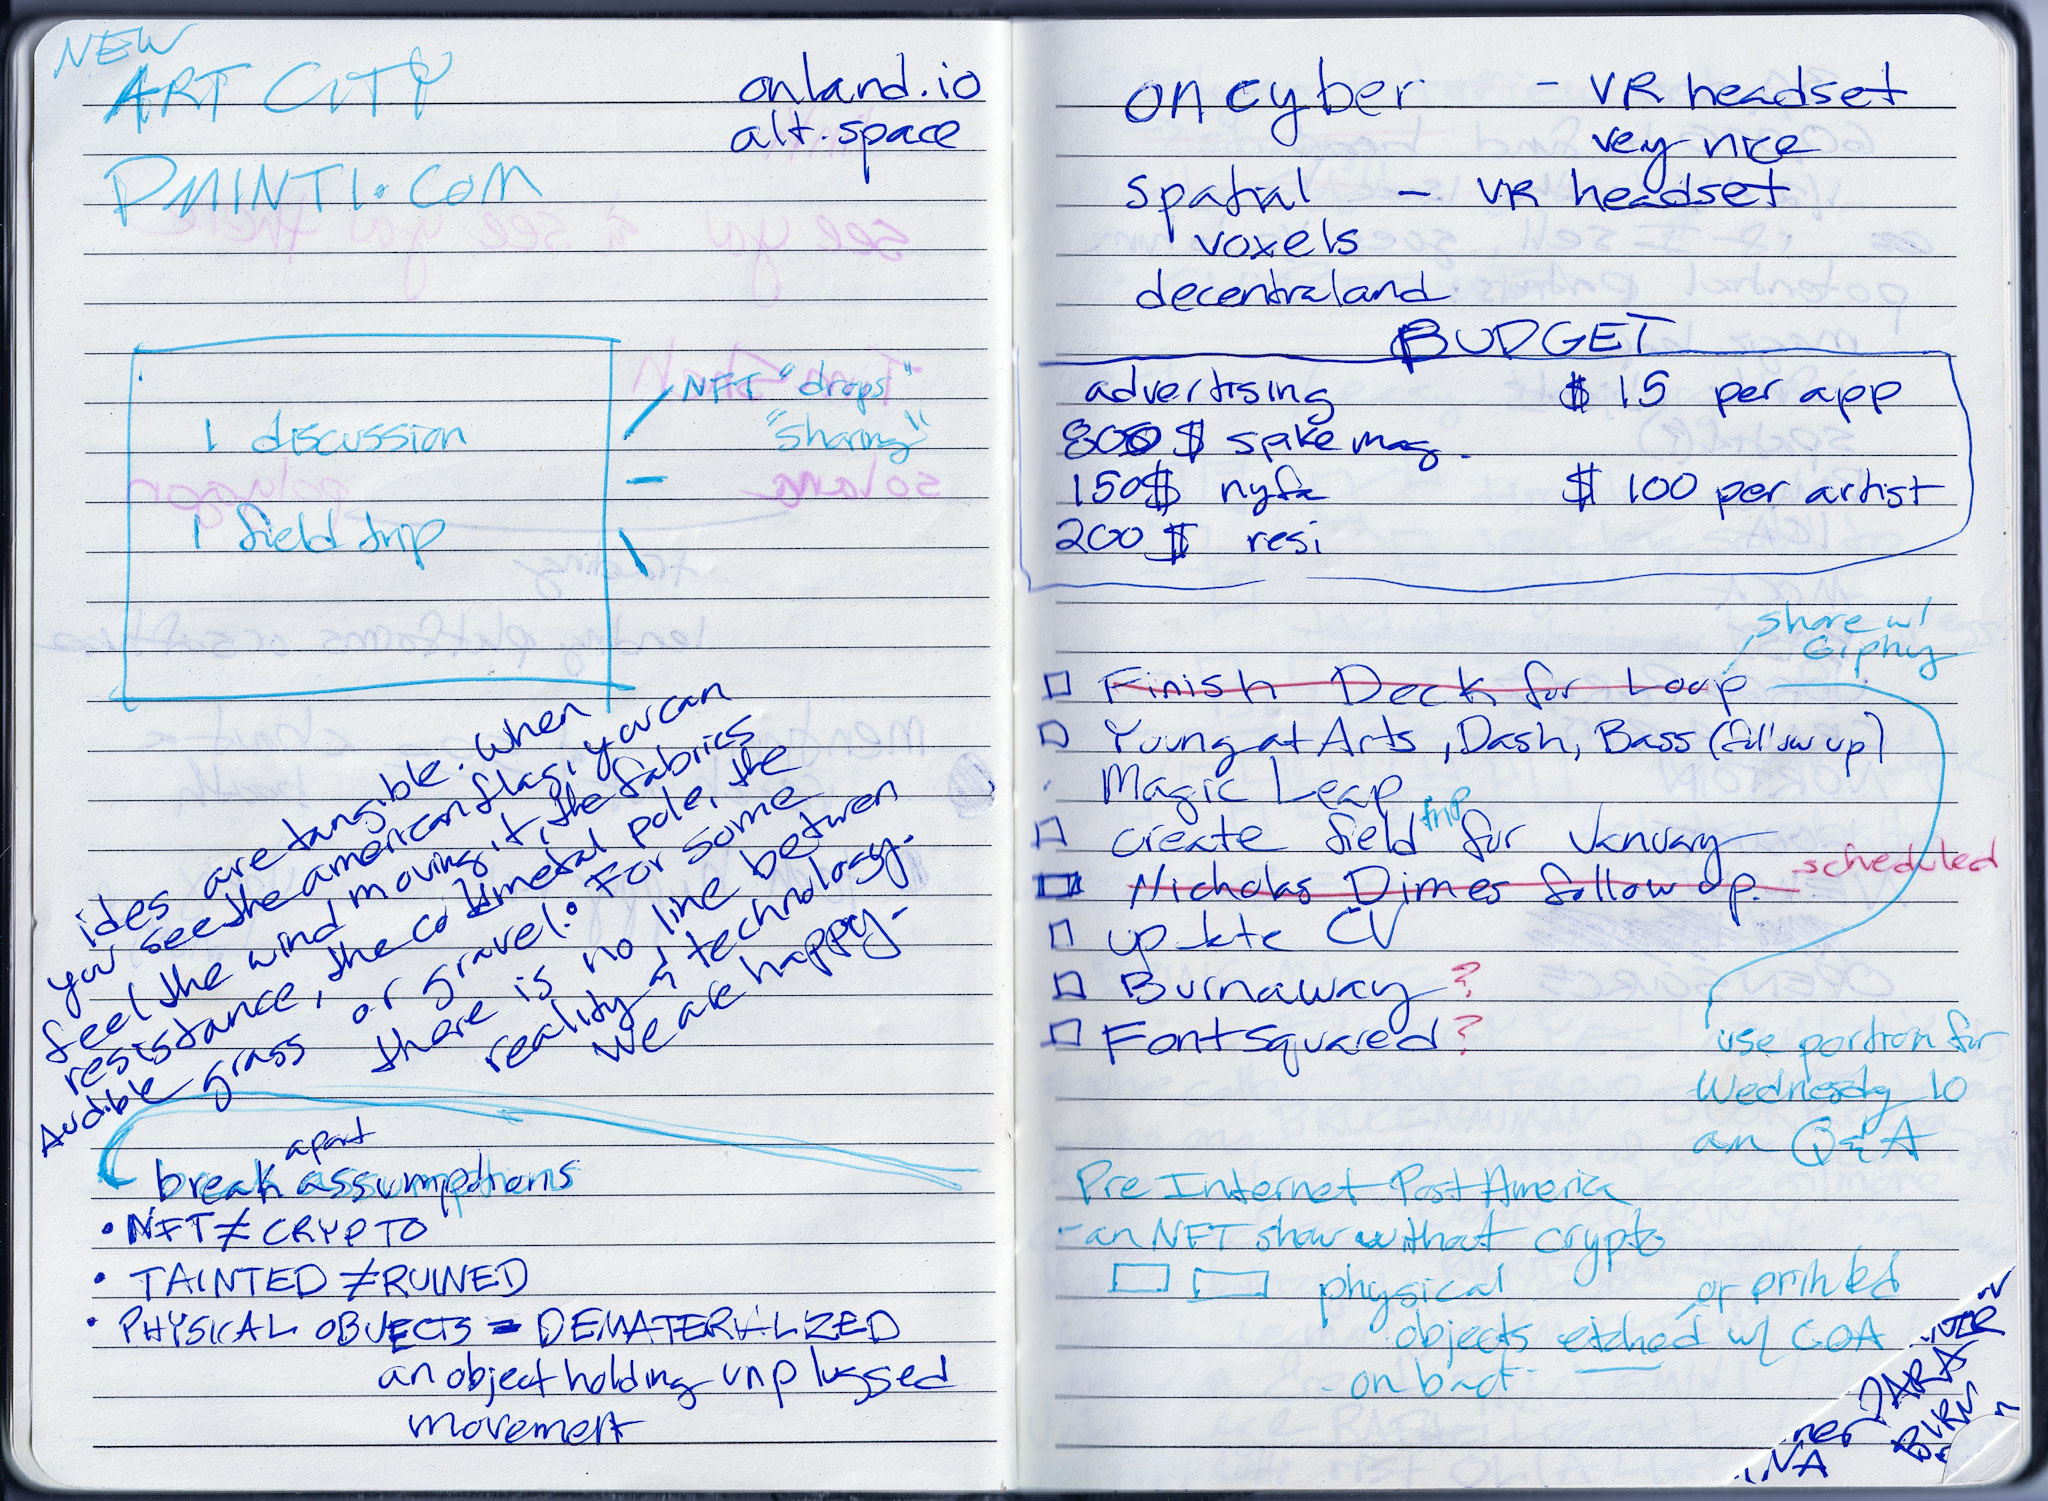 NEW
ART CITY
onland.io
alt.space
PMINTI.COM
1 discussion
1 field trip
NFT "drops"
"sharing"
ides are tangible. when
you see the american flag, you can
feel the wind moving it, the fabrics
resistance, the cold metal pole, the
Audible grass or gravel. For some
there is no line between
reality & technology.
We are happy-
break apart assumptions
• NFT ≠ CRYPTO
• TAINTED ≠ RUINED
• PHYSICAL OBJECTS = DEMATERIALIZED
an object holding unplugged
movement
on cyber - VR headset
very nice
spatial - VR headset
voxels
decentraland
BUDGET
advertising $ 15 per app
800 $ spike mag.
150$ nyfa $ 100 per artist
200 $ resi
share w/
Giphy
Finish Deck for Loop
Young at Arts, Dash, Bass (follow up)
Magic Leap
create field trip for January
Nicholas Dimes follow up. -scheduled
update CV
Burnaway ?
Fontsquared ?
use portion for
Wednesday 10
an Q & A
Pre Internet Post America
- an NFT show without crypto
physical or printed
objects etched w/ COA
- on back -
BURN